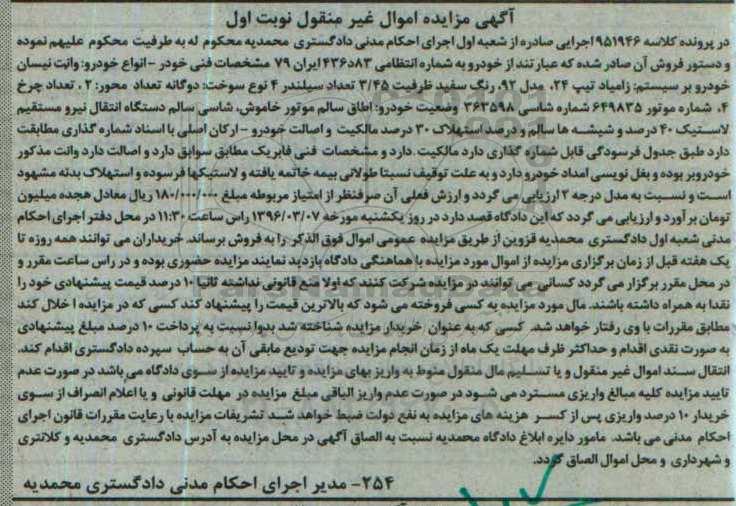 آگهی مزایده اموال غیر منقول نوبت اول
در پرونده کلاسه ۹۵۱۹۴۶ اجرایی صادره از شعبه اول اجرای احکام مدنی دادگستری محمدیه محکوم له به طرفیت محکوم علیهم نموده
و دستور فروش آن صادر شده که عبارتند از خودرو به شماره انتظامی ۴۳۶د۸۳ ایران ۷۹ مشخصات فنی خودر - انواع خودرو: وانت نیسان
خودرو بر سیستم: زامیاد تیپ ۲۴، مدل ۹۲، رنگ سفید ظرفیت ۳/۴۵ تعداد سیلندر ۴ نوع سوخت: دوگانه تعداد محور: ۲ ، تعداد چرخ
۴، شماره موتور ۶۴۹۸۳۵ شماره شاسی ۳۶۳۵۹۸ وضعیت خودرو: اطاق سالم موتور خاموش، شاسی سالم دستگاه انتقال نیرو مستقیم
لاستیک ۴۰ درصد و شیشه ها سالم و درصد استهلاک ۳۰ درصد مالکیت و اصالت خودرو - ارکان اصلی با اسناد شماره گذاری مطابقت
دارد طبق جدول فرسودگی قابل شماره گذاری دارد مالکیت .دارد و مشخصات فنی فابریک مطابق سوابق دارد و اصالت دارد وانت مذکور
خودروبر بوده و بغل نویسی امداد خودرو دارد و به علت توقیف نسبتا طولانی بیمه خاتمه یافته و لاستیکها فرسوده و استهلاک بدنه مشهود
است و نسبت به مدل درجه ۲ ارزیابی می گردد و ارزش فعلی آن صرفنظر از امتیاز مربوطه مبلغ ۱۸۰/۰۰۰/۰۰۰ ریال معادل هجده میلیون
تومان برآورد و ارزیابی می گردد که این دادگاه قصد دارد در روز یکشنبه مورخه ۱۳۹۶/۰۳/۰۷ راس ساعت ۱۱:۳۰ در محل دفتر اجرای احکام
مدنی شعبه اول دادگستری محمدیه قزوین از طریق مزایده عمومی اموال فوق الذکر را به فروش برساند. خریداران می توانند همه روزه تا
یک هفته قبل از زمان برگزاری مزایده از اموال مورد مزایده با هماهنگی دادگاه بازدید نمایند مزایده حضوری بوده و در راس ساعت مقرر و
در محل مقرر برگزار می گردد کسانی می توانند در مزایده شرکت کنند که اولا منع قانونی نداشته ثانیا ۱۰ درصد قیمت پیشنهادی خود را
نقدا به همراه داشته باشند. مال مورد مزایده به کسی فروخته می شود که بالاترین قیمت را پیشنهاد کند کسی که در مزایده ا خلال کند
مطابق مقررات با وی رفتار خواهد شد. کسی که به عنوان خریدار مزایده شناخته شد بدوا نسبت به پرداخت ۱۰ درصد مبلغ پیشنهادی
به صورت نقدی اقدام و حداکثر ظرف مهلت یک ماه از زمان انجام مزایده جهت تودیع مابقی آن به حساب سپرده دادگستری اقدام کند.
انتقال سند اموال غیر منقول و یا تسلیم مال منقول منوط به واریز بهای مزایده و تایید مزایده از سوی دادگاه می باشد در صورت عدم
تایید مزایده کلیه مبالغ واریزی مسترد می شود در صورت عدم واریز الباقی مبلغ مزایده در مهلت قانونی و یا اعلام انصراف از سوی
خریدار ۱۰ درصد واریزی پس از کسر هزینه های مزایده به نفع دولت ضبط خواهد شد تشریفات مزایده با رعایت مقررات قانون اجرای
احکام مدنی می باشد. مامور دایره ابلاغ دادگاه محمدیه نسبت به الصاق آگهی در محل مزایده به آدرس دادگستری محمدیه و کلانتری
و شهرداری و محل اموال الصاق گردد.
۲۵۴- مدیر اجرای احکام مدنی دادگستری محمدیه